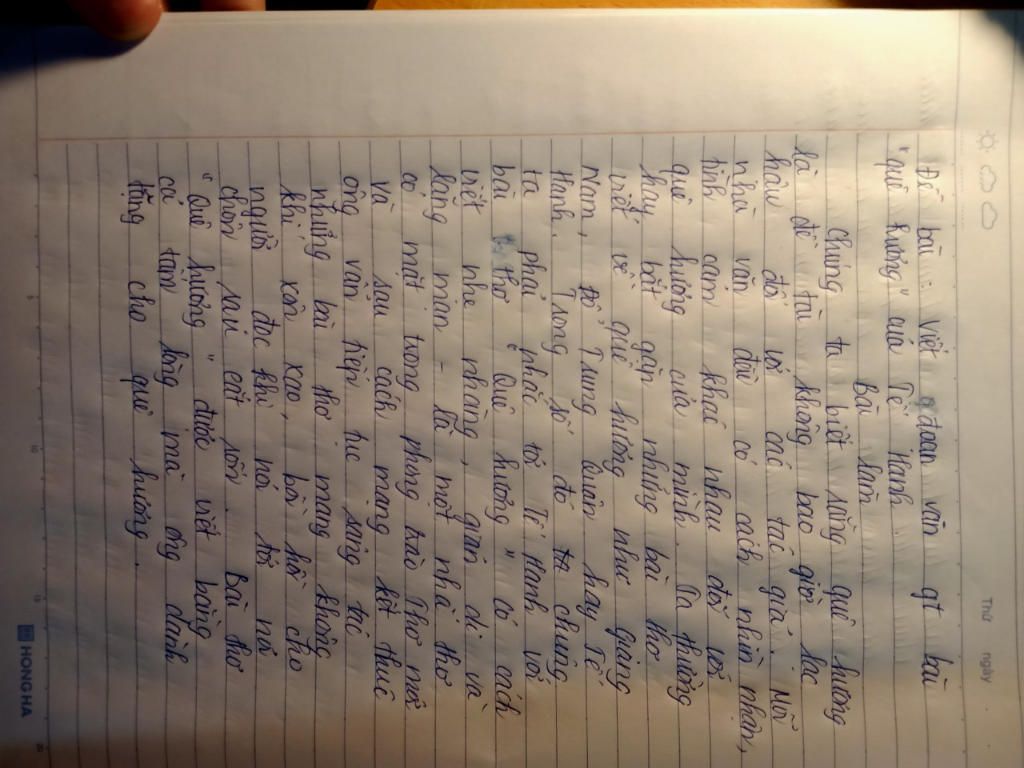 Thứ ngày
Đề bài: viết đoạn văn gt bài
"quê hương" của Tế Hanh.
Bài làm
Chúng ta biết rằng quê hương
là đề tài không bao giờ lạc
hậu đối với các tác giả. Mỗi
nhà văn đều có cách nhìn nhận,
tình cảm khác nhau đối với
quê hương của mình. Ta thường
hay bắt gặp những bài thơ
viết về quê hương như Giang
Nam, Đỗ Trung Quân hay Tế
Hanh. Trong số đó ta chúng
ta phải nhắc tới Tế Hanh với
bài thơ "Quê hương" có cách
viết nhẹ nhàng, giản dị và
lãng mạn - là một nhà thơ
có mặt trong phong trào Thơ mới
và sau cách mạng kết thúc
ông vẫn tiếp tục sáng tác
những bài thơ mang không
khí xôn xao, bồi hồi cho
người đọc khi nói tới nơi
chôn rau cắt rốn. Bài thơ
"Quê hương" được viết bằng
cả tấm lòng mà ông dành
tặng cho quê hương.
5
10
15
20
HONG HA